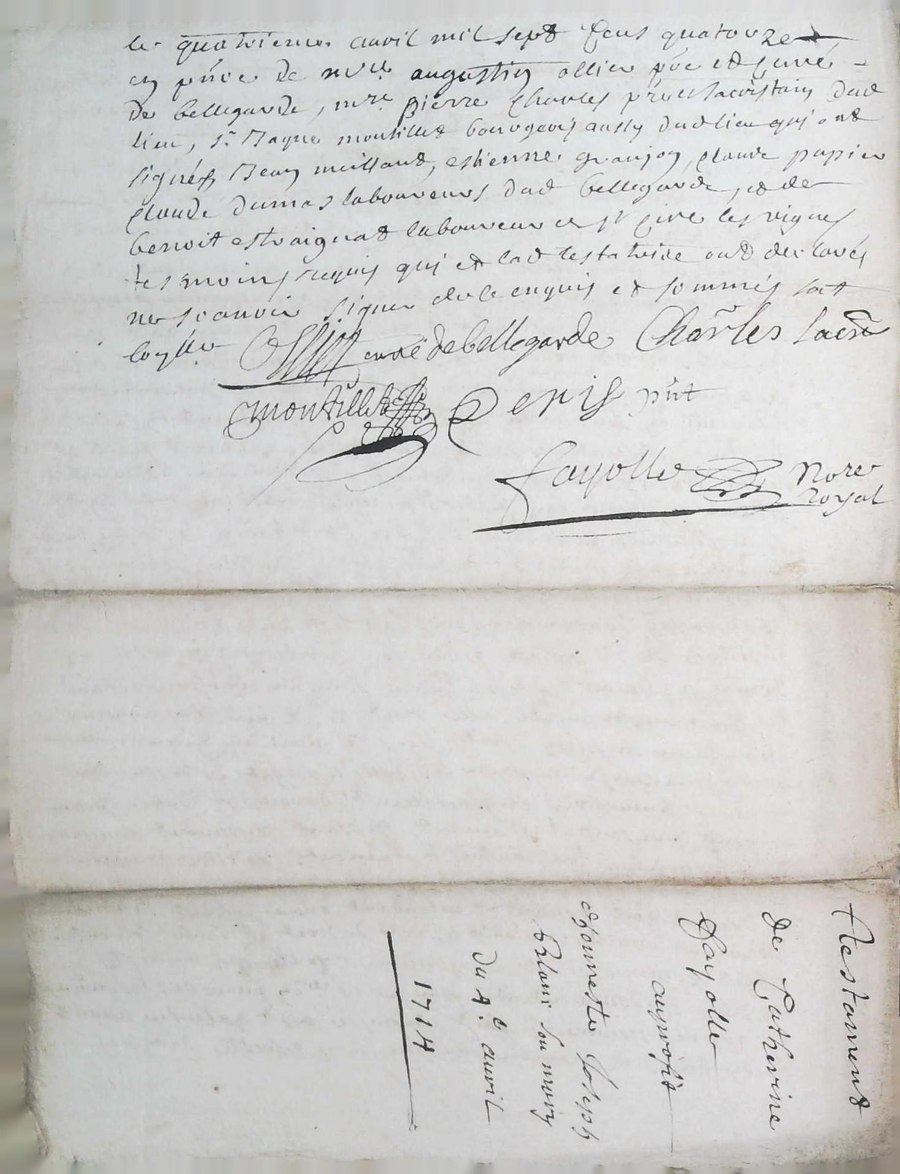 le quatrieme avril mil sept Cens quatorze
en pñce de mre augustin ollier pbre et Curé
de bellegarde, mre pierre Charles prebtre sacristain dud
lieu, sr montillet bourgeois aussy dud lieu qui ont
signés Jean meillant, estienne granjon, Claude papier
Claude dumas laboureurs dud bellegarde, et de
benoit estraignat laboureur de st Cire les vignes
tesmoins requis qui et lad testatrice ont declarés
ne scavoir signer de ce enquis et sommés
Ollier curé de bellegarde Charles Sacrn
montillet Denis pñt
fayolle Nore
royal
Testament
de Catherine
fayolle
auproffit
d'honneste Joseph
son mary
du 4e avril
1714